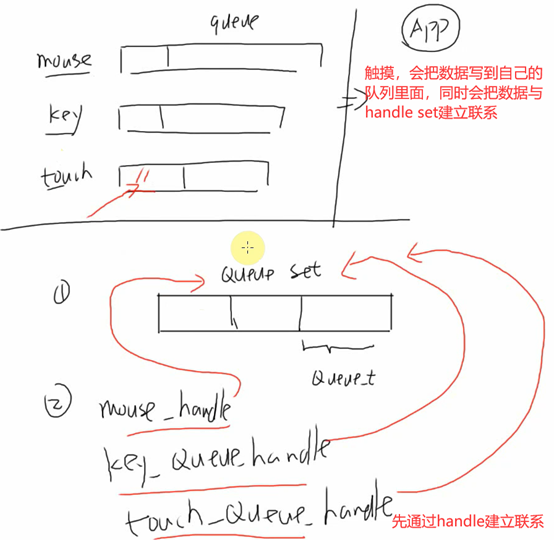 queue
App
mouse
触摸，会把数据写到自己的
队列里面，同时会把数据与
handle set建立联系
key
touch
Queue set
①
Queue_t
②
mouse_handle
key_Queue_handle
touch_Queue_handle
先通过handle建立联系